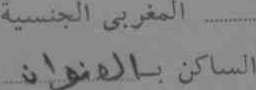 المغربي الجنسية
الساكن بالعنوان